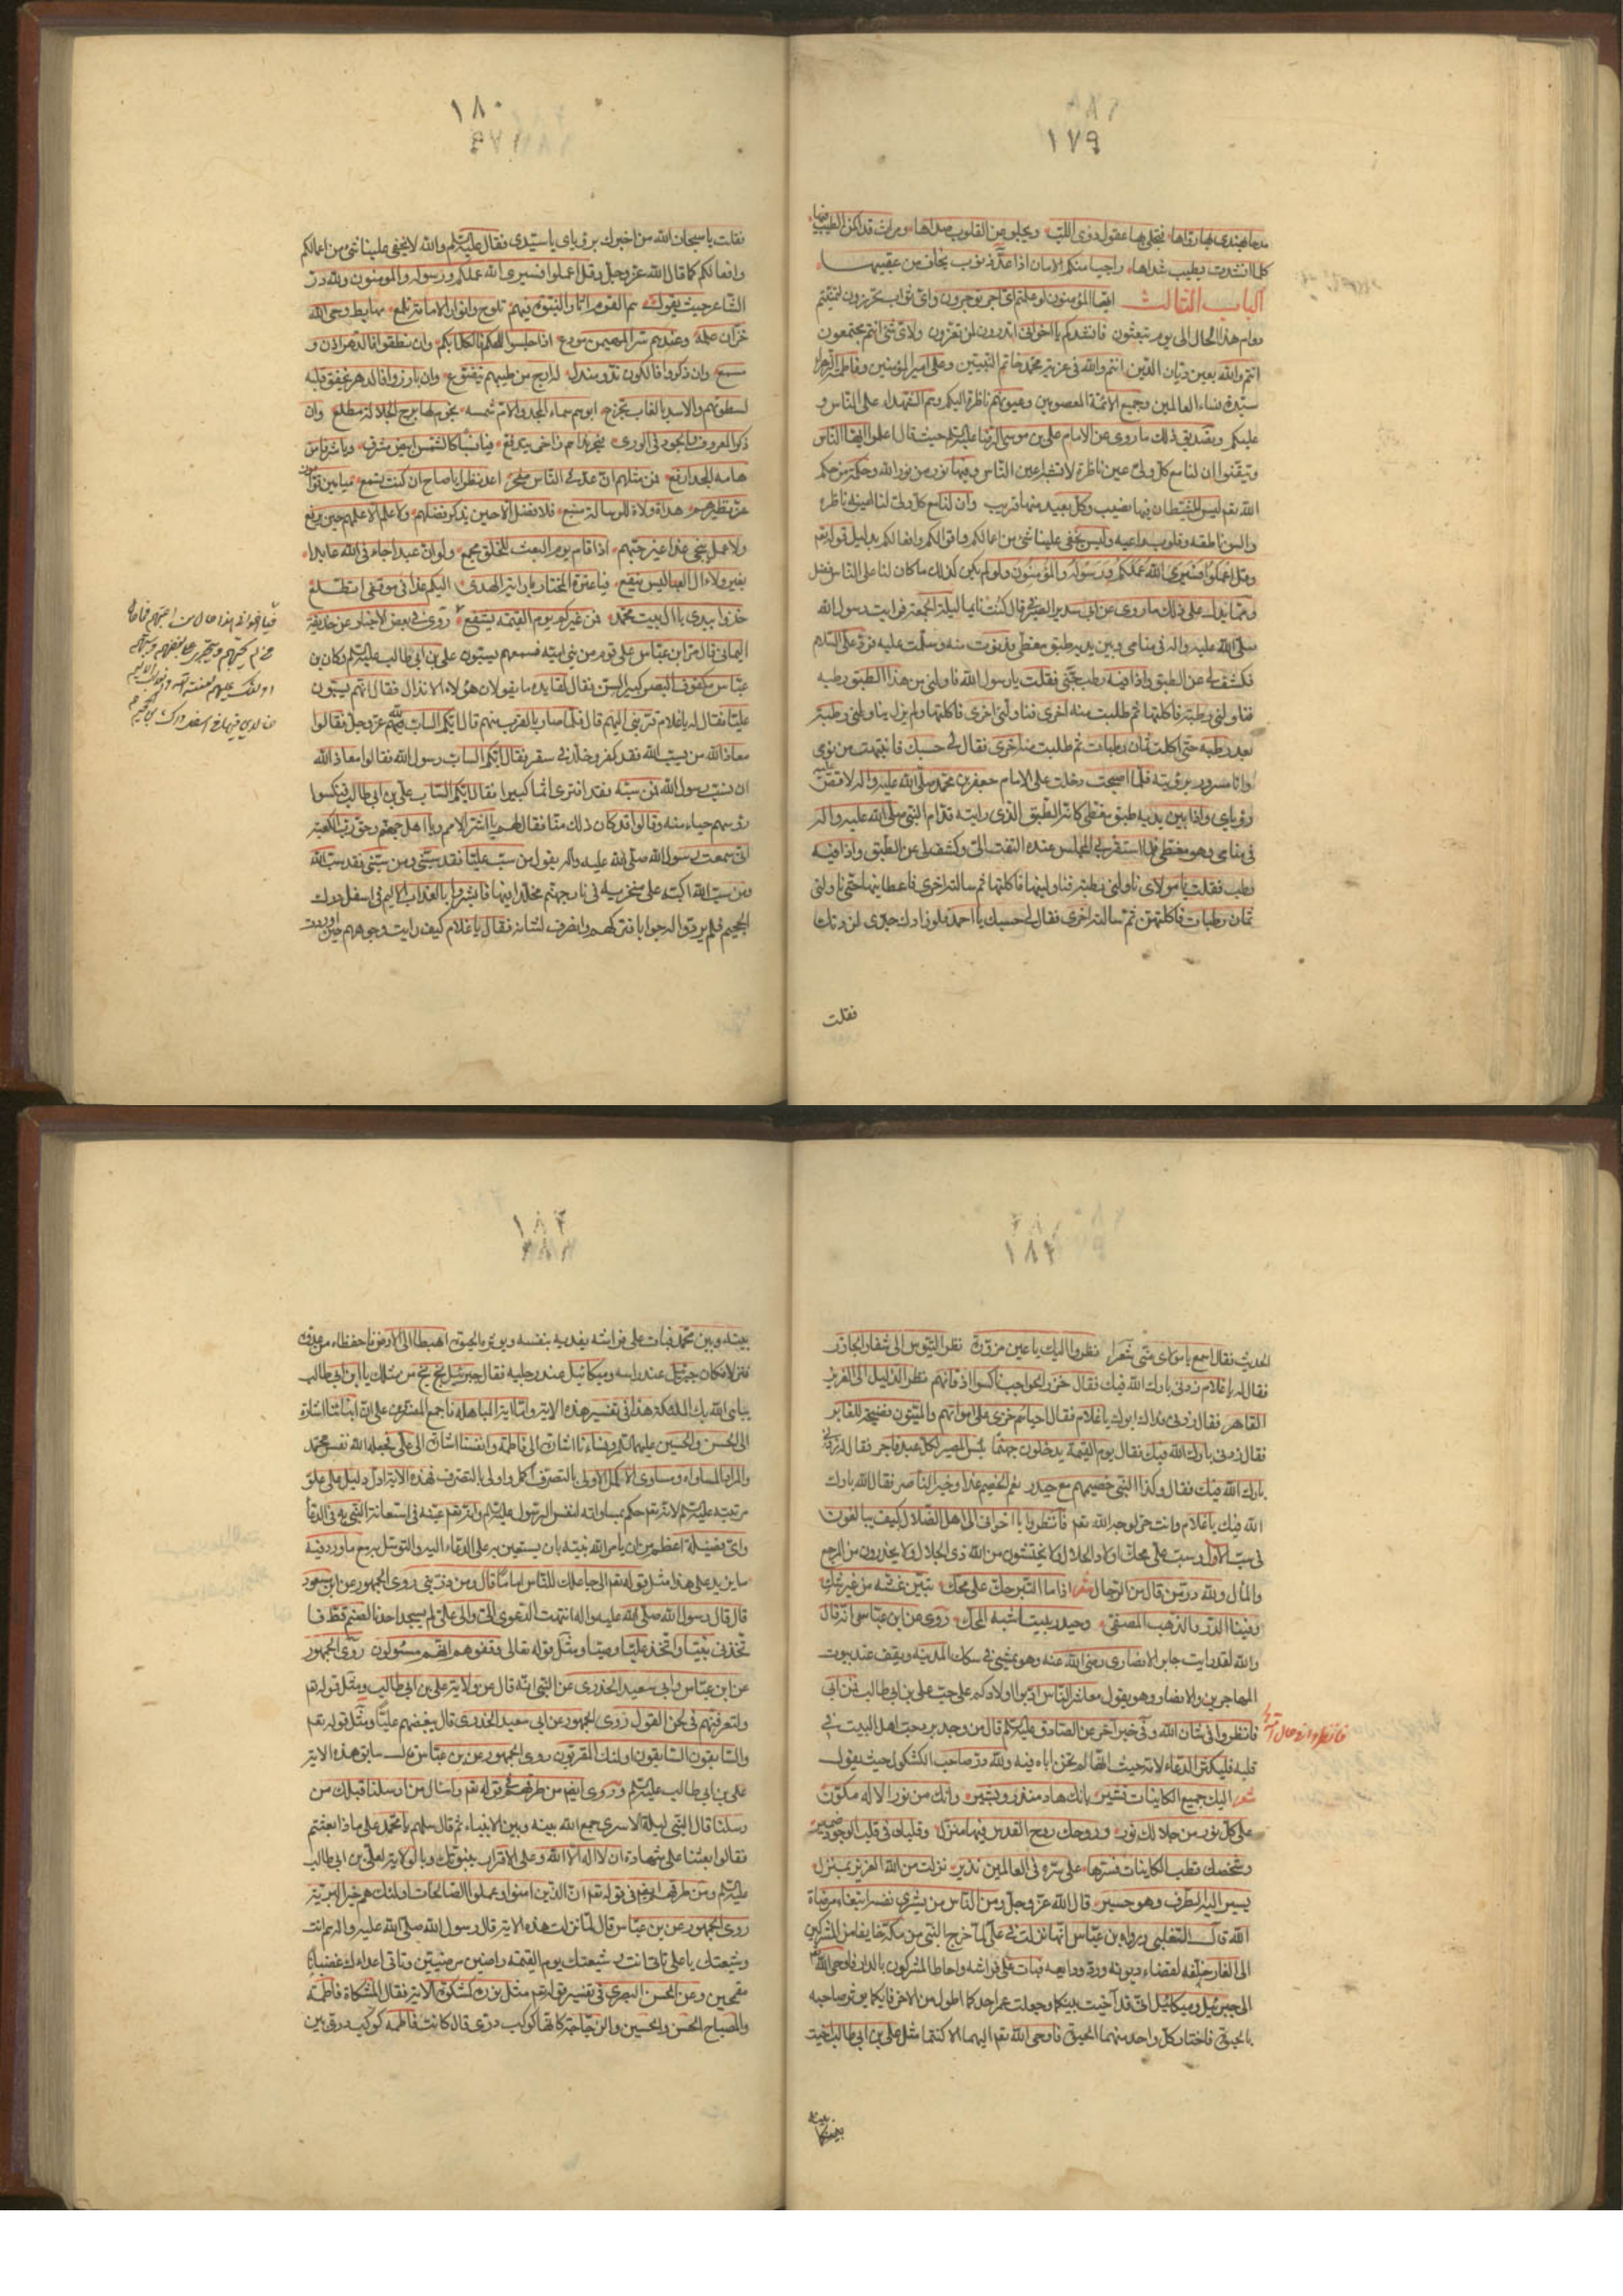 ١٧٩
بها عقول ذوى اللب ويجلى من القلوب صداها
كلما انشدت يطيب شذاها راجيا منكم الامان اذا عد ذنوب يخاف من عقبيها
الباب الثالث ايها المؤمنون لو علمتم اى اجر توجرون واى ثواب تحرزون لتمنيتم
دوام هذا الحال الى يوم تبعثون فانشدكم يا اخوانى اتدرون لمن تعزون ولاى شئ انتم مجتمعون
انتم والله بعين ديان الدين انتم والله فى عزية محمد خاتم النبيين وعلى امير المؤمنين وفاطمة الزهرا
سيدة نساء العالمين وجميع الائمة المعصومين وعيونهم ناظرة اليكم وهم الشهداء على الناس و
عليكم وتصديق ذلك ما روى عن الامام على بن موسى الرضا عليه السلم حيث قال اعلموا ايها الناس
وتيقنوا ان لنا مع كل ولى عين ناظرة لا تشابه اعين الناس وفيها نور من نور الله وحكمة من حكم
الله تعم ليس للشيطان فيها نصيب وكل بعيد منها قريب وان لنا مع كل ولى لنا اعين ناظره
والسن ناطقه وقلوب داعيه وليس يخفى علينا شئ من اعمالكم واقوالكم وافعالكم بدليل قوله تعم
وقل اعملوا فسيرى الله عملكم ورسوله والمؤمنون ولو لم يكن كذلك ما كان لنا على الناس فضل
ومما يدل على ذلك ما روى عن ابى سدير الصيرفى قال كنت نايما ليلة الجمعة فرايت رسول الله
صلى الله عليه واله فى منامى وبين يديه طبق مغطى فدنوت منه وسلمت عليه فرد على السلام
فكشف لى عن الطبق واذا فيه رطب جنى فقلت يا رسول الله ناولنى من هذا الطبق رطبه
فناولنى رطبة فاكلتها ثم طلبت منه اخرى فناولنى اخرى فاكلتها ولم يزل يناولنى رطبة
بعد رطبه حتى اكلت ثمان رطبات ثم طلبت منه اخرى فقال لى حسبك فانتبهت من نومى
وانا مسرور برؤيته فلما اصبحت دخلت على الامام جعفر بن محمد صلى الله عليه واله لاقص عليه
رؤياى واذا بين يديه طبق مغطى كانه الطبق الذى رايته قدام النبى صلى الله عليه واله
فى منامى وهو مغطى فلما استقر بى المجلس عنده التفت الى وكشف لى عن الطبق واذا فيه
رطب فقلت يا مولاى ناولنى رطبة فناولنيها فاكلتها ثم سالته اخرى فاعطانيها حتى ناولنى
ثمان رطبات فاكلتهن ثم سالته اخرى فقال لى حسبك يا احمد فلو زادك جدى لزدتك
فقلت
١٨٠
فقلت يا سبحان الله من اخبرك برؤياى يا سيدى فقال عليه السلم والله لا يخفى علينا شئ من اعمالكم
وافعالكم كما قال الله عز وجل وقل اعملوا فسيرى الله عملكم ورسوله والمومنون ولله در
الشاعر حيث يقول هم القوم اثار النبوة فيهم تلوح وانوار الامامة تلمع مهابط وحى الله
خزان علمه وعندهم سر المهيمن مودع اذا جلسوا للحكم فالكل ابكم وان نطقوا فالدهر اذن و
مسمع وان ذكروا فالكون ند ومندل له ارج من طيبهم يتضوع وان بارزوا فالدهر يخفق قلبه
لسطوتهم والاسد بالغاب تجزع ابوهم سماء المجد والام شمسه نجوم لها برج الجلالة مطلع وان
ذكر المعروف والجود فى الورى فبحر نداهم زاخر يتدفع فيا نسبا كالشمس ابيض مشرق ويا شرفا من
هامه المجد ارفع فمن مثلهم ان عد فى الناس مفخر اعد نظرا يا صاح ان كنت تسمع ميامين قوامون
عز نظيرهم هداة ولاة للرسالة منبع فلا فضل الا حين يذكر فضلهم ولا علم الا علمهم حين يرفع
ولا عمل ينجى غدا غير حبهم اذا قام يوم البعث للخلق مجمع ولو ان عبدا جاء فى الله عابدا
بغير ولاء ال العبا ليس ينفع فيا عترة المختار يا راية الهدى اليكم غدا فى موقفى اتطلع
خذوا بيدى يا ال بيت محمد فمن غيركم يوم القيمه يشفع روى فى بعض الاخبار عن حذيفة
اليمانى قال مر ابن عباس على قوم من بنى اميه فسمعهم يسبون على بن ابى طالب عليه السلم وكان بن
عباس مكفوف البصر كبير السن فقال لقايده ما يقولان هؤلاء الانذال فقال انهم يسبون
عليا فقال له يا غلام قربنى اليهم قال فلما صار بالقرب منهم قال ايكم الساب الله عز وجل فقالوا
معاذ الله من يسب الله فقد كفر وخلد فى سقر فقال ايكم الساب رسول الله فقالوا معاذ الله
ان نسب رسول الله فمن سبه فقد افترى اثما كبيرا فقال ايكم الساب على بن ابى طالب فنكسوا
رؤسهم حياء منه وقالوا قد كان ذلك منا فقال لهم يا اشر الامم ويا اهل جهنم وحق رب الكعبة
انى سمعت رسول الله صلى الله عليه واله يقول من سب عليا فقد سبنى ومن سبنى فقد سب الله
ومن سب الله اكبه على منخريه فى نار جهنم مخلدا فيها فابشروا بالعذاب الاليم فى اسفل درك
الجحيم فلم يردوا له جوابا فتركهم وانصرف لشانه فقال يا غلام كيف رايت وجوههم حين
١٨٣
الحديث فقال اسمع يا مولاى منى شعرا نظروا اليك باعين مزورة نظر التيوس الى شفار الجازر
فقال له يا غلام زدنى بارك الله فيك فقال خزر الحواجب ناكسوا اذقانهم نظر الذليل الى العزيز
القاهر فقال زدنى فداك ابوك يا غلام فقال احياؤهم خزى على امواتهم والميتون فضيحة للغابر
فقال زدنى بارك الله فيك فقال يوم القيمة يدخلون جهنما بئس المصير لكل عبد فاجر فقال له زدنى
بارك الله فيك فقال وكذا النبى خصيمهم مع حيدر نعم الخصيم غدا وخير الناصر فقال الله بارك
الله فيك يا غلام وانت حر لوجه الله تعم فانظروا يا اخوانى الى اهل الضلال كيف يبالغون
والله لقد رايت جابر الانصارى رضى الله عنه وهو يمشى فى سكك المدينه ويقف عند بيوت
المهاجرين والانصار وهو يقول معاشر الناس ادبوا اولادكم على حب على بن ابى طالب فمن ابى
فانظروا فى شان الله وفى خبر اخر عن الصادق عليه السلم قال من وجد برد حب اهل البيت فى
قلبه فليكثر الدعاء لامه حيث انها لم تخن اباه فيه ولله در صاحب الكشكول حيث يقول
شعر اليك جميع الكاينات تشير بانك هاد منذر وبشير وانك من نور الاله مكون
على كل نور من جلالك نور وروحك روح القدس فيها منزل وقلبك فى قلب الوجود ضمير
وشخصك قطب الكاينات فسرها على سره فى العالمين تدير نزلت من الله العزيز بمنزل
يسير اليه الطرف وهو حسير قال الله عز وجل ومن الناس من يشرى نفسه ابتغاء مرضاة
الله قال الثعلبى ورواه بن عباس انها نزلت فى على لما خرج النبى من مكة خايفا من المشركين
الى الغار خلفه لقضاء ديونه ورد ودايعه فبات على فراشه واحاط المشركون بالدار فاوحى الله
الى جبرئيل وميكائيل انى قد آخيت بينكما وجعلت عمر احدكما اطول من الاخر فايكما يوثر صاحبه
بالحيوة فاختار كل واحد منهما الحيوة فاوحى الله تعم اليهما الا كنتما مثل على بن ابى طالب اخيت
بينه
١٨٤
بينه وبين محمد فبات على فراشه يفديه بنفسه ويوثره بالحيوة اهبطا الى الارض فاحفظاه من عدوه
فنزلا فكان جبرئيل عند راسه وميكائيل عند رجليه فقال جبرئيل بخ بخ من مثلك يا ابن ابى طالب
يباهى الله بك الملئكة هذا فى تفسير هذه الاية واما اية المباهلة فاجمع المفسرون على ان ابنائنا اشارة
الى الحسن والحسين عليهما السلم ونساءنا اشارة الى فاطمة وانفسنا اشارة الى على فجعله الله نفس محمد
والمراد المساواه ومساوى الاكمل الاولى بالتصرف اكمل واولى بالتصرف فهذه الاية ادل دليل على علو
مرتبته عليه السلم لانه تعم حكم بمساواته لنفس الرسول عليه السلم وانه تعم عينه فى استعانة النبى به فى الدعا
واى فضيلة اعظم من ان يامر الله نبيه بان يستعين به على الدعاء اليه والتوسل به مع ما ورد فيه
ما يزيد على هذا مثل قوله تعم انى جاعلك للناس اماما قال ومن ذريتى روى الجمهور عن ابن مسعود
قال قال رسول الله صلى الله عليه واله انتهت الدعوى الى والى على لم يسجد احدنا لصنم قط فا
تخذنى نبيا واتخذ عليا وصيا ومثل قوله تعالى وقفوهم انهم مسئولون روى الجمهور
عن ابن عباس وابى سعيد الخدرى عن النبى انه قال عن ولاية على بن ابى طالب ومثل قوله تعم
ولتعرفنهم فى لحن القول روى الجمهور عن ابى سعيد الخدرى قال ببغضهم عليا ومثل قوله تعم
والسابقون السابقون اولئك المقربون روى الجمهور عن بن عباس سابق هذه الامة
على بن ابى طالب عليه السلم وروى ايضا من طرقهم فى قوله تعم واسال من ارسلنا قبلك من
رسلنا قال النبى ليلة الاسرى جمع الله بينه وبين الانبياء ثم قال سلهم يا محمد على ماذا بعثتم
فقالوا بعثنا على شهادة ان لا اله الا الله وعلى الاقرار بنبوتك وبالولاية لعلى بن ابى طالب
عليه السلم ومن طرقهم ايضا فى قوله تعم ان الذين امنوا وعملوا الصالحات اولئك هم خير البرية
روى الجمهور عن بن عباس قال لما نزلت هذه الاية قال رسول الله صلى الله عليه واله هم انت
وشيعتك يا على تاتى انت وشيعتك يوم القيمة راضين مرضيين وتاتى اعداءك غضبانا
مقمحين وعن الحسن البصرى فى تفسير قوله تعم مثل نوره كمشكوة الاية فقال المشكاة فاطمة
والمصباح الحسن والحسين والزجاجة كانها كوكب درى قال كانت فاطمه كوكب درى بين